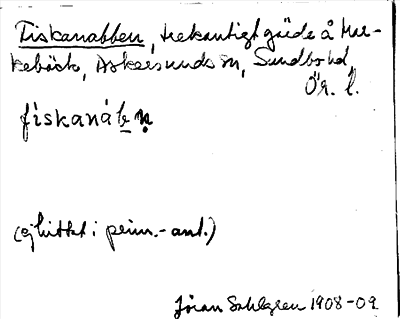 Fiskanabben, trekantigt gärde å Mar-
kebäck, Askersunds sn, Sundbo hd,
Ör. l.
fiskanáben
(ej hittat i prim.-ant.)
Jöran Sahlgren 1908-09